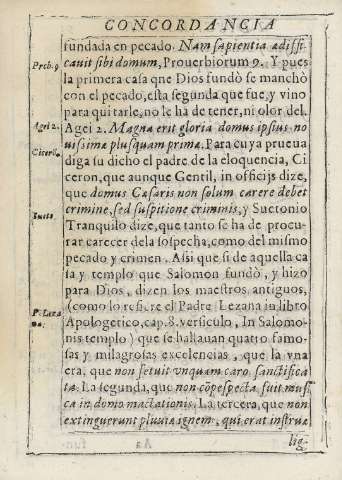 CONCORDANCIA
fundada en pecado. Nam sapientia ædifi
Prob. 9 cauit sibi domum, Prouerbiorum 9. Y pues
la primera casa que Dios fundò se manchò
con el pecado, esta segunda que fue, y vino
para quitarle, no le ha de tener, ni olor del.
Agei 2. Agei 2. Magna erit gloria domus ipsius no
uissimæ plusquam primæ. Para cuya prueua
Cicero. diga su dicho el padre de la eloquencia, Ci
ceron, que aunque Gentil, in officijs dize,
que domus Cæsaris non solum carere debet
crimine, sed suspitione criminis, y Suetonio
Sueto. Tranquilo dize, que tanto se ha de procu-
rar carecer dela sospecha, como del mismo
pecado y crimen. Assi que si de aquella ca
sa y templo que Salomon fundò, y hizo
para Dios, dizen los maestros antiguos,
P. Leza na. (como lo refiere el Padre Lezana in libro
Apologetico, cap. 8. versiculo, In Salomo-
nis templo) que se hallauan quatro famo-
sas y milagrosas excelencias, que la vna
era, que non fetuit vnquam caro sanctifica
tæ. La segunda, que non cõpespecta fuit musi
ca in domo mactationis. La tercera, que non
extinguerunt pluuiæ ignem, qui erat instruæ
lig-